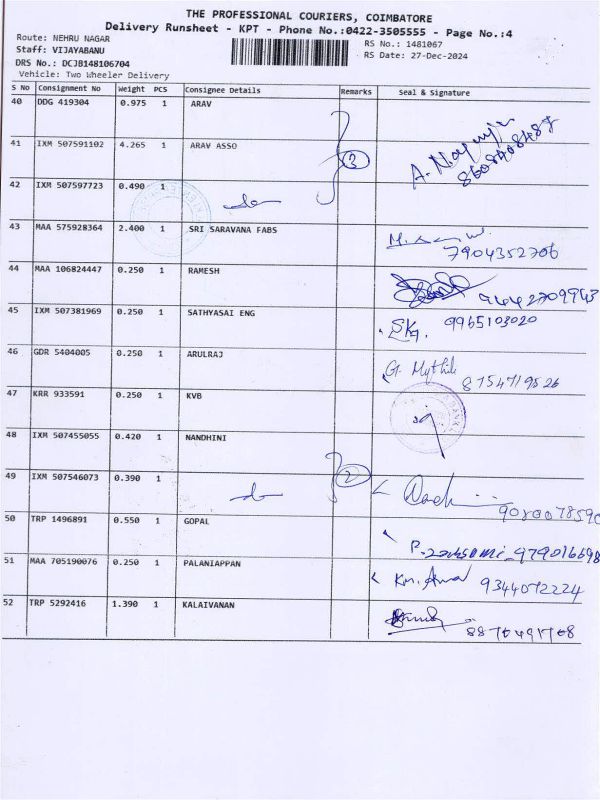 THE PROFESSIONAL COURIERS, COIMBATORE
Delivery Runsheet - KPT - Phone No.:0422-3505555 - Page No.:4
Route: NEHRU NAGAR
RS No.: 1481067
Staff: VIJAYABANU
RS Date: 27-Dec-2024
DRS No.: DCJB148106704
Vehicle: Two Wheeler Delivery
S No Consignment No Weight PCS Consignee Details Remarks Seal & Signature
40 DDG 419304 0.975 1 ARAV
41 IXM 507591102 4.265 1 ARAV ASSO 3 8608408487
42 IXM 507597723 0.490 1 do
43 MAA 575928364 2.400 1 SRI SARAVANA FABS 7904352706
44 MAA 106824447 0.250 1 RAMESH 9442709943
45 IXM 507381969 0.250 1 SATHYASAI ENG SKq. 9965103020
46 GDR 5404005 0.250 1 ARULRAJ G. Mythili 8754719526
47 KRR 933591 0.250 1 KVB
48 IXM 507455055 0.420 1 NANDHINI
49 IXM 507546073 0.390 1 do 2 9080078590
50 TRP 1496891 0.550 1 GOPAL
51 MAA 705190076 0.250 1 PALANIAPPAN 9344072224
52 TRP 5292416 1.390 1 KALAIVANAN